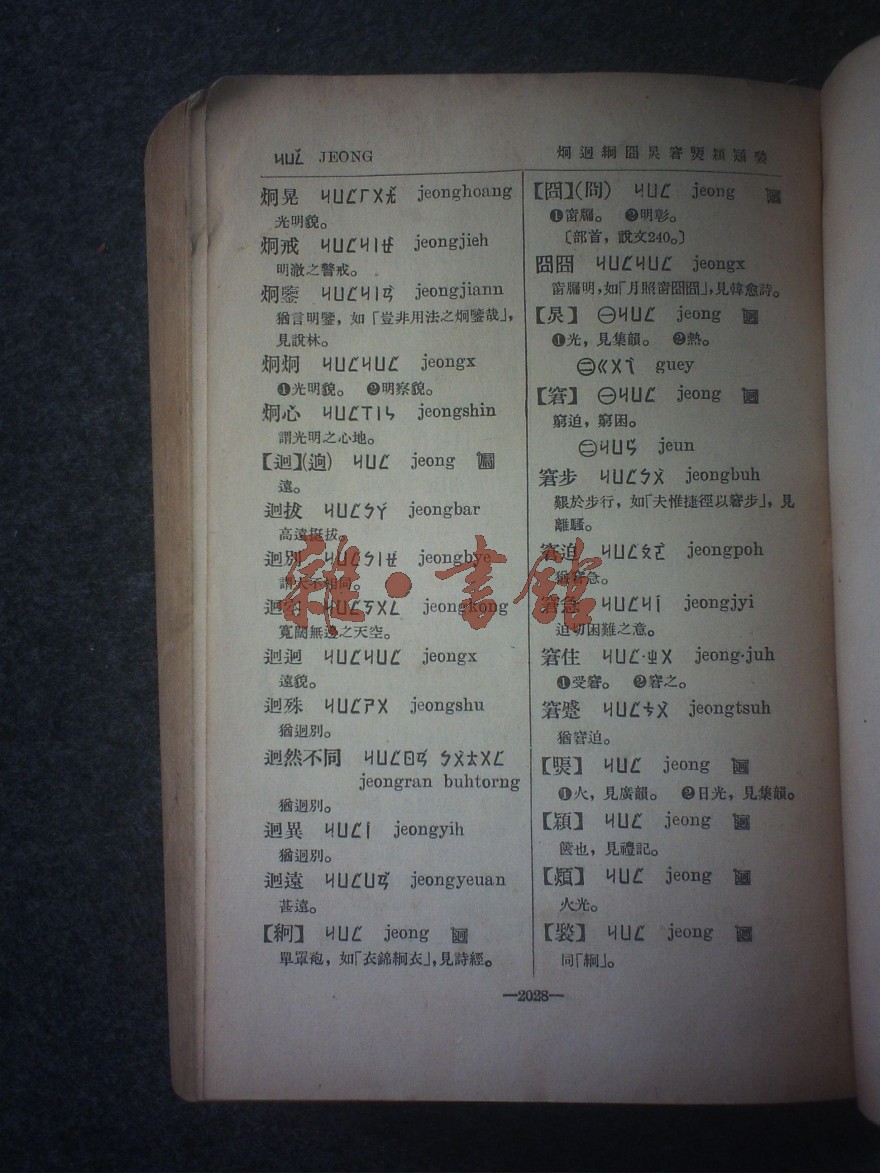 ㄐㄩㄥˇ JEONG
炯迥絅囧炅窘煚熲熲褧
炯晃 ㄐㄩㄥㄏㄨㄤ jeonghoang
光明貌。
炯戒 ㄐㄩㄥㄐㄧㄝ jeongjieh
明澈之警戒。
炯鑒 ㄐㄩㄥㄐㄧㄢ jeongjiann
猶言明鑒,如「豈非用法之炯鑒哉」,
見說林。
炯炯 ㄐㄩㄥㄐㄩㄥ jeongx
❶光明貌。 ❷明察貌。
炯心 ㄐㄩㄥㄒㄧㄣ jeongshin
謂光明之心地。
【迥】(逈) ㄐㄩㄥ jeong
遠。
迥拔 ㄐㄩㄥㄅㄚ jeongbar
高遠挺拔。
迥別 ㄐㄩㄥㄅㄧㄝ jeongbye
謂大不相同。
迥空 ㄐㄩㄥㄎㄨㄥ jeongkong
寬闊無邊之天空。
迥迥 ㄐㄩㄥㄐㄩㄥ jeongx
遠貌。
迥殊 ㄐㄩㄥㄕㄨ jeongshu
猶迥別。
迥然不同 ㄐㄩㄥㄖㄢ ㄅㄨㄊㄨㄥ
jeongran buhtorng
猶迥別。
迥異 ㄐㄩㄥㄧ jeongyih
猶迥別。
迥遠 ㄐㄩㄥㄩㄢ jeongyeuan
甚遠。
【絅】 ㄐㄩㄥ jeong
單罩袍,如「衣錦絅衣」,見詩經。
【囧】(冏) ㄐㄩㄥ jeong
❶窗牖。 ❷明彰。
〔部首,說文240。〕
囧囧 ㄐㄩㄥㄐㄩㄥ jeongx
窗牖明,如「月照窗囧囧」,見韓愈詩。
【炅】 ㊀ㄐㄩㄥ jeong
❶光,見集韻。 ❷熱。
㊁ㄍㄨㄟ guey
【窘】 ㊀ㄐㄩㄥ jeong
窮迫,窮困。
㊁ㄐㄩㄣ jeun
窘步 ㄐㄩㄥㄅㄨ jeongbuh
艱於步行,如「夫惟捷徑以窘步」,見
離騷。
窘迫 ㄐㄩㄥㄆㄛ jeongpoh
猶窘急。
窘急 ㄐㄩㄥㄐㄧ jeongjyi
迫切困難之意。
窘住 ㄐㄩㄥ·ㄓㄨ jeong·juh
❶受窘。 ❷窘之。
窘蹙 ㄐㄩㄥㄘㄨ jeongtsuh
猶窘迫。
【煚】 ㄐㄩㄥ jeong
❶火,見廣韻。 ❷日光,見集韻。
ㄐㄩㄥ jeong
也,見禮記。
【熲】 ㄐㄩㄥ jeong
火光。
【褧】 ㄐㄩㄥ jeong
同「絅」。
—2028—
雜·書館